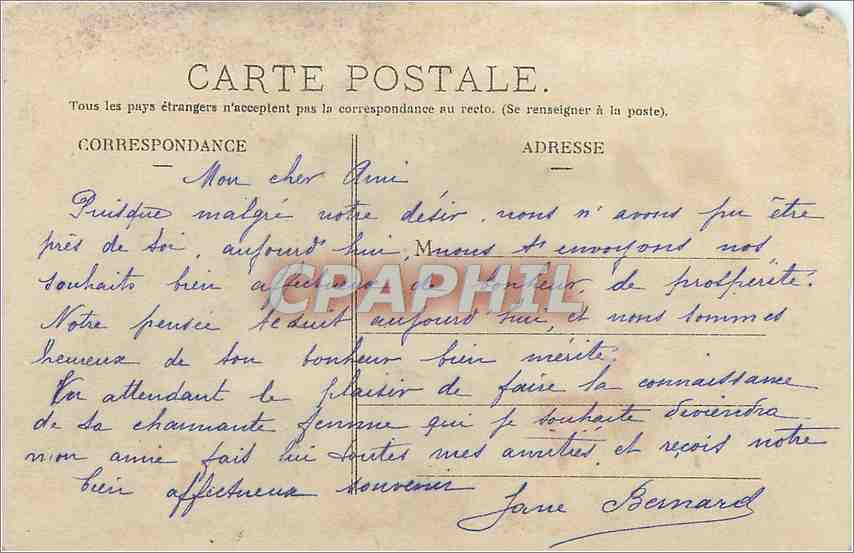 CARTE POSTALE.
Tous les pays étrangers n'acceptent pas la correspondance au recto. (Se renseigner à la poste).
CORRESPONDANCE ADRESSE
Mon cher Ami
Puisque malgré notre désir, nous n'avons pu être
près de toi, aujourd'hui, M nous t'envoyons nos
souhaits bien affectueux de bonheur, de prospérité.
Notre pensée te suit aujourd'hui, et nous sommes
heureux de ton bonheur bien mérité.
En attendant le plaisir de faire la connaissance
de ta charmante femme qui je souhaite deviendra
mon amie fais lui toutes mes amitiés, et reçois notre
bien affectueux souvenir
Jane Bernard
CPAPHIL